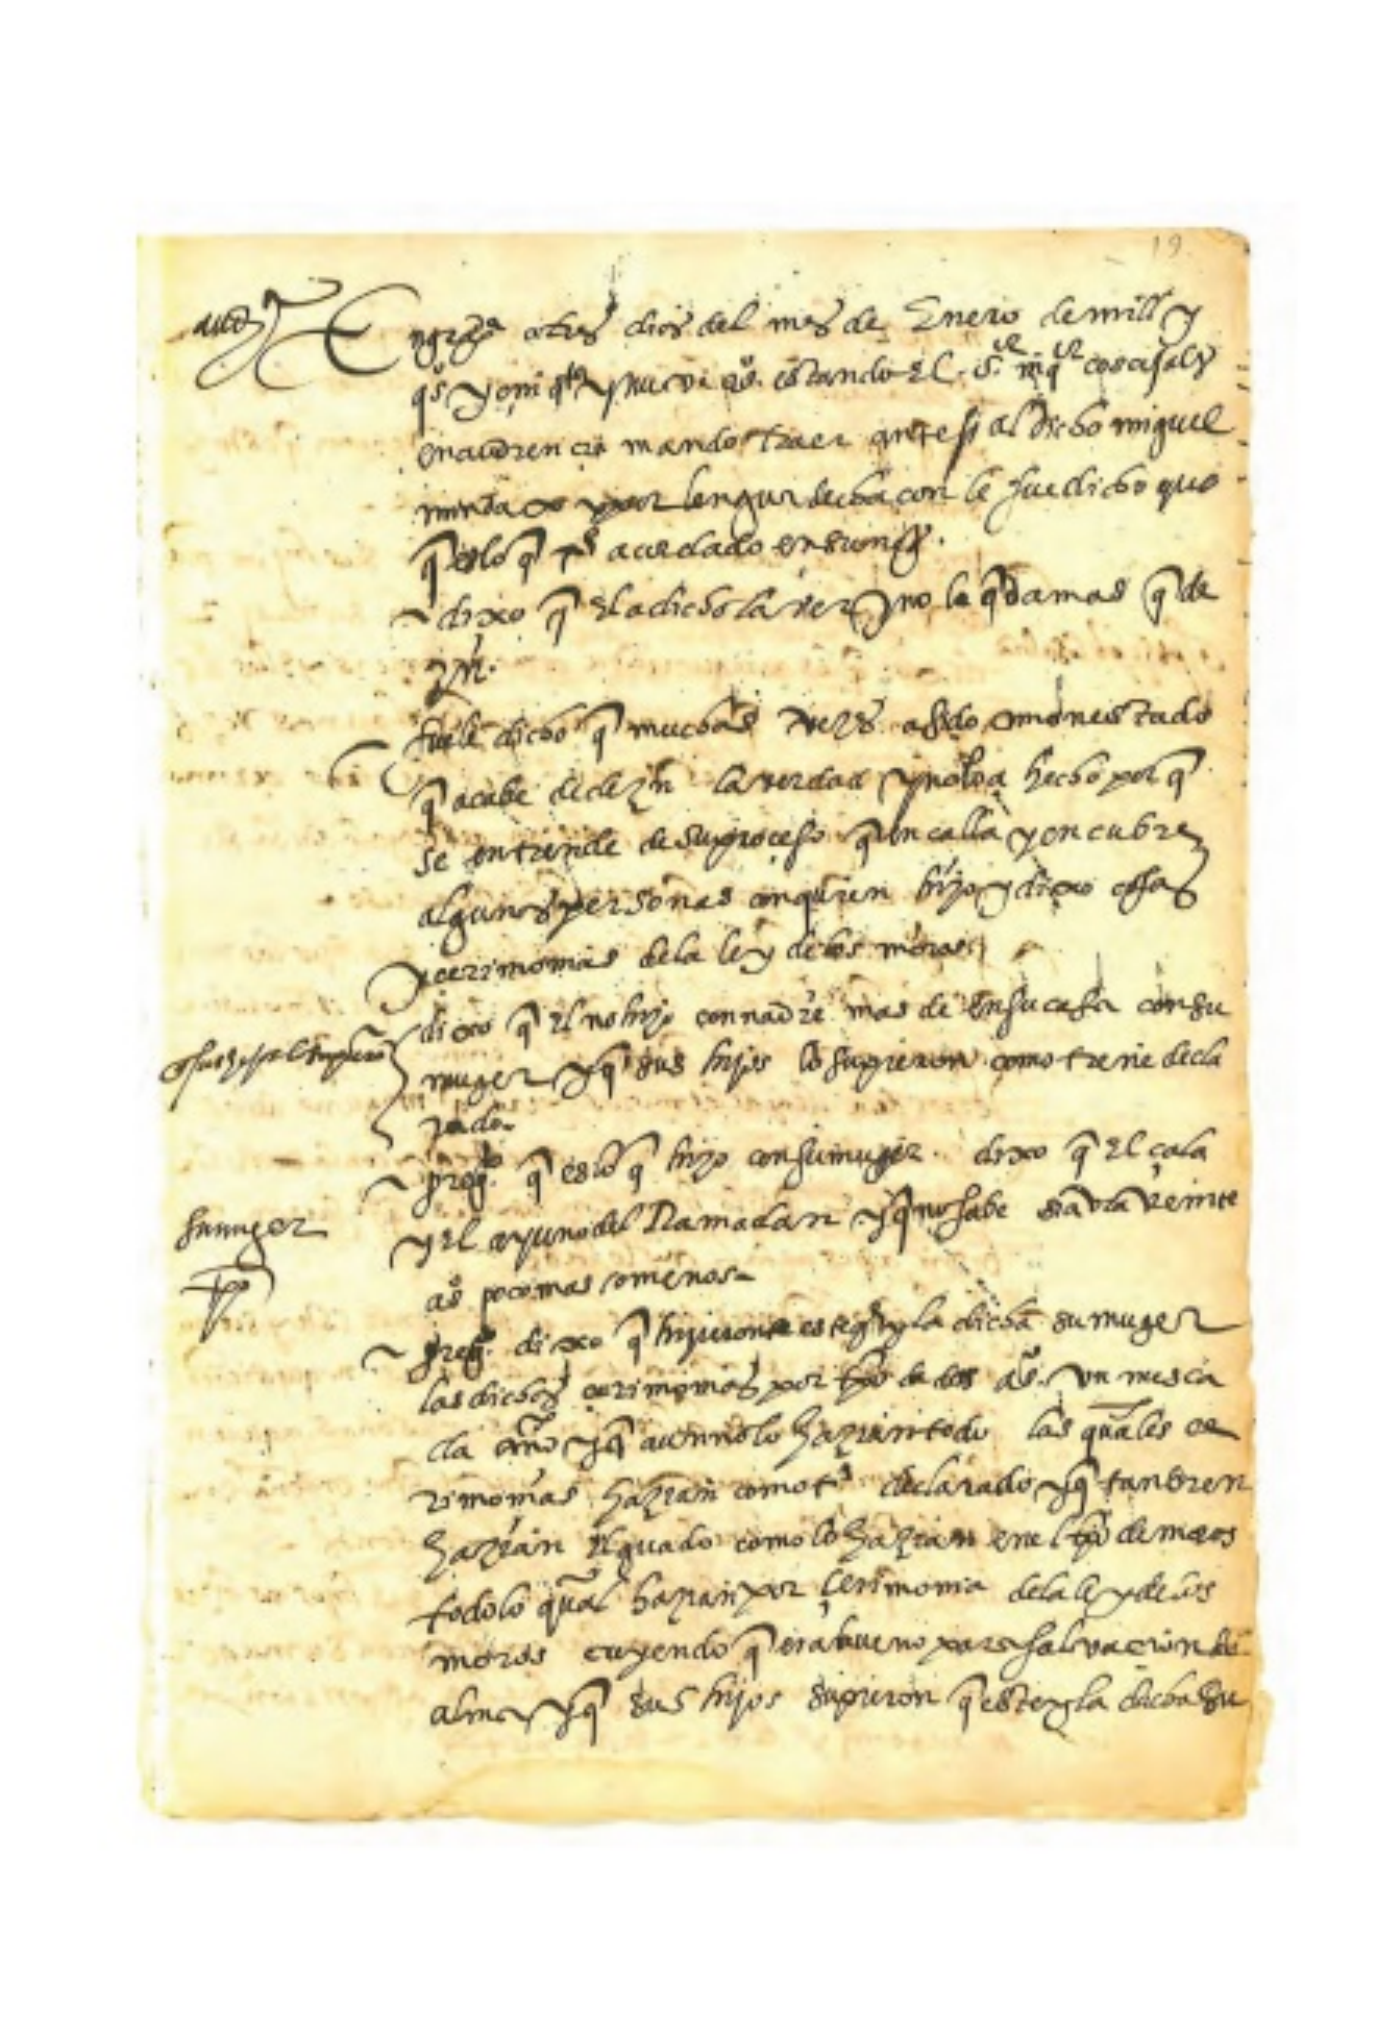 19
audª
En grª a tres dias del mes de Enero de mill y
qºs y çinqtª y nueve aºs. estando El sºr inqºr coscojales
en audiencia mando traer ante si al dicho miguel
y por lengua de chacon le fue dicho que
q es lo q acordado en su negº.
~ dixo q El a dicho la verd y no le qda mas q de
zir.
fuele dicho q muchas vezes a sido amonestado
q acabe de dezir la verdad y no lo a hecho por q
se entiende de su proceso q en calla y encubre
algunas personas con quien hizo y dixo cosas
y cerimonias de la ley de los moros
dixo q El no hizo con nadie mas de en su casa con su
muger y q sus hijos lo supieron como tiene decla
rado.
~ pregº. q es lo q hizo con su muger. dixo q El çala
su muger
y El ayuno del Ramadan y q no sabe si avra veinte
aºs poco mas o menos
~ pregº. dixo q hizieron este y la dicha su muger
las dichas cerimonias por tpo de dos aºs. un mes ca
da año y q aun no lo hazian todo las quales ce
rimonias hazian como tº declarado y q tanbien
hazian El guado como lo hazian en el tpo de moros
todo lo qual hazian por çerimonia de la ley de los
moros creyendo q era bueno para salvacion del
alma y q sus hijos supieron q este y la dicha su